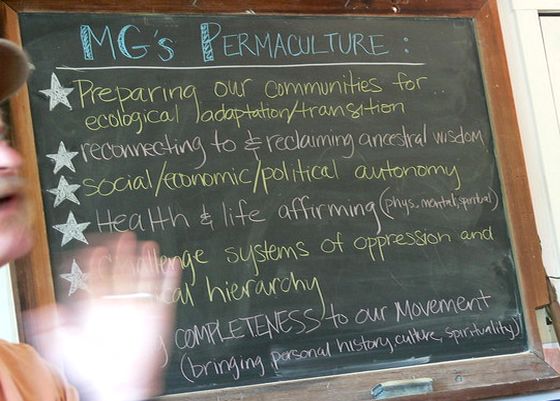 MG's PERMACULTURE :
Preparing our communities for
ecological adaptation/transition
reconnecting to & reclaiming ancestral wisdom
social/economic/political autonomy
Health & life affirming (phys., mental, spiritual)
challenge systems of oppression and
hierarchy
COMPLETENESS to our MOVEMENT
(bringing personal history, culture, spirituality)